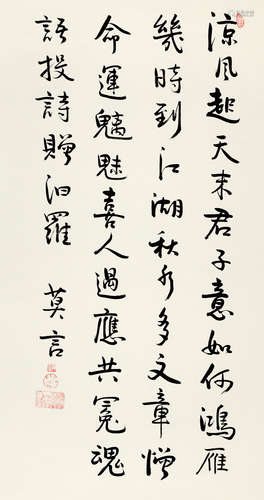 涼風起天末君子意如何鴻雁
幾時到江湖秋水多文章憎
命運魑魅喜人過應共冤魂
語投詩贈汨羅 莫言